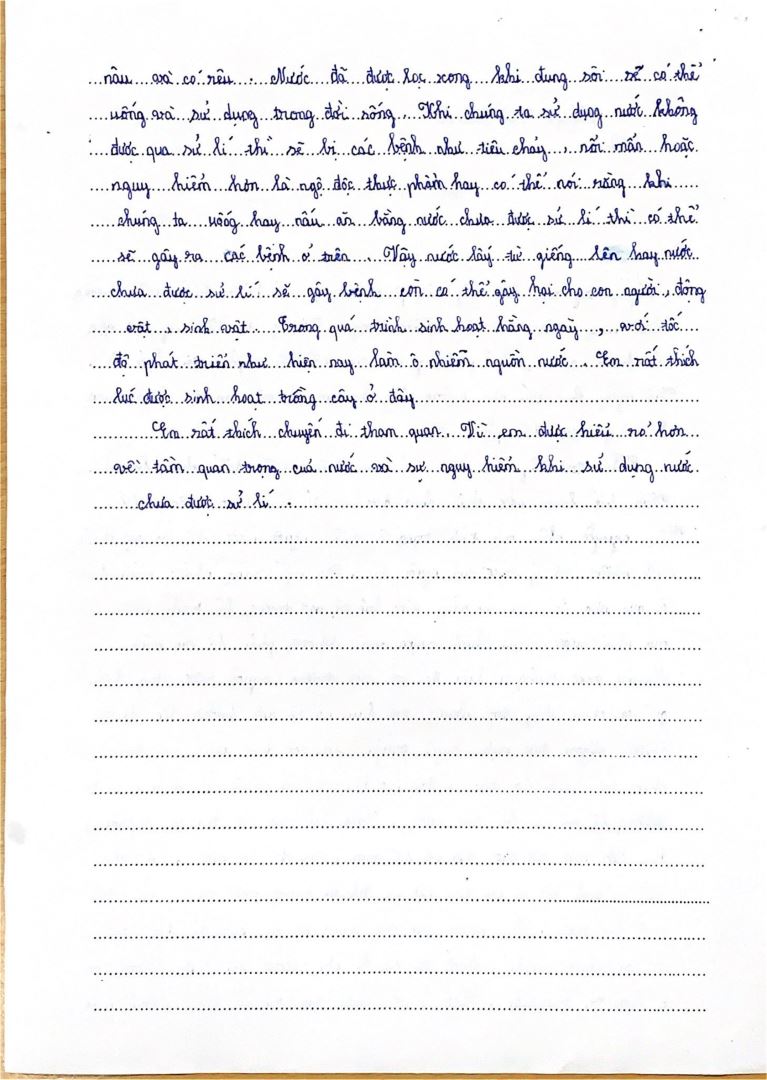 nâu và có rêu. Nước đã được lọc xong khi đung sôi sẽ có thể
uống và sử dụng trong đời sống. Khi chúng ta sử dụng nước không
được qua sử lí thì sẽ bị các bệnh như tiêu chảy, nổi mẩn hoặc
nguy hiểm hơn là ngộ độc thực phẩm hay có thể nói rằng khi
chúng ta uôóg hay nấu ăn bằng nước chưa được sử lí thì có thể
sẽ gây ra các bệnh ở trên. Vậy nước lấy từ giếng lên hay nước
chưa được sử lí sẽ gây bệnh còn có thể gây hại cho con người, động
vật, sinh vật. Trong quá trình sinh hoạt hằng ngày, với tốc
độ phát triển như hiện nay làm ô nhiễm nguồn nước. Em rất thích
lúc được sinh hoạt trồng cây ở đây
Em rất thích chuyến đi tham quan. Vì em được hiểu rõ hơn
về tầm quan trọng của nước và sự nguy hiểm khi sử dụng nước
chưa được sử lí.